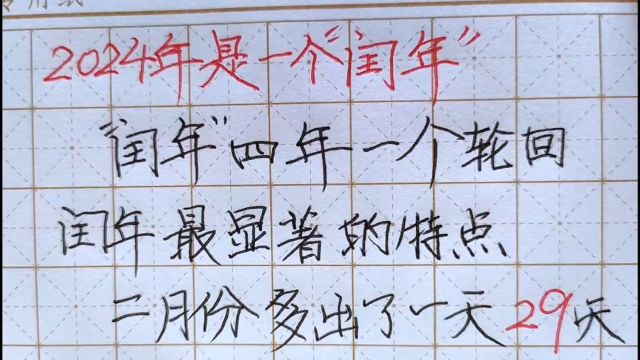 2024年是一个"闰年"
"闰年"四年一个轮回
闰年最显著的特点
二月份多出了一天29天